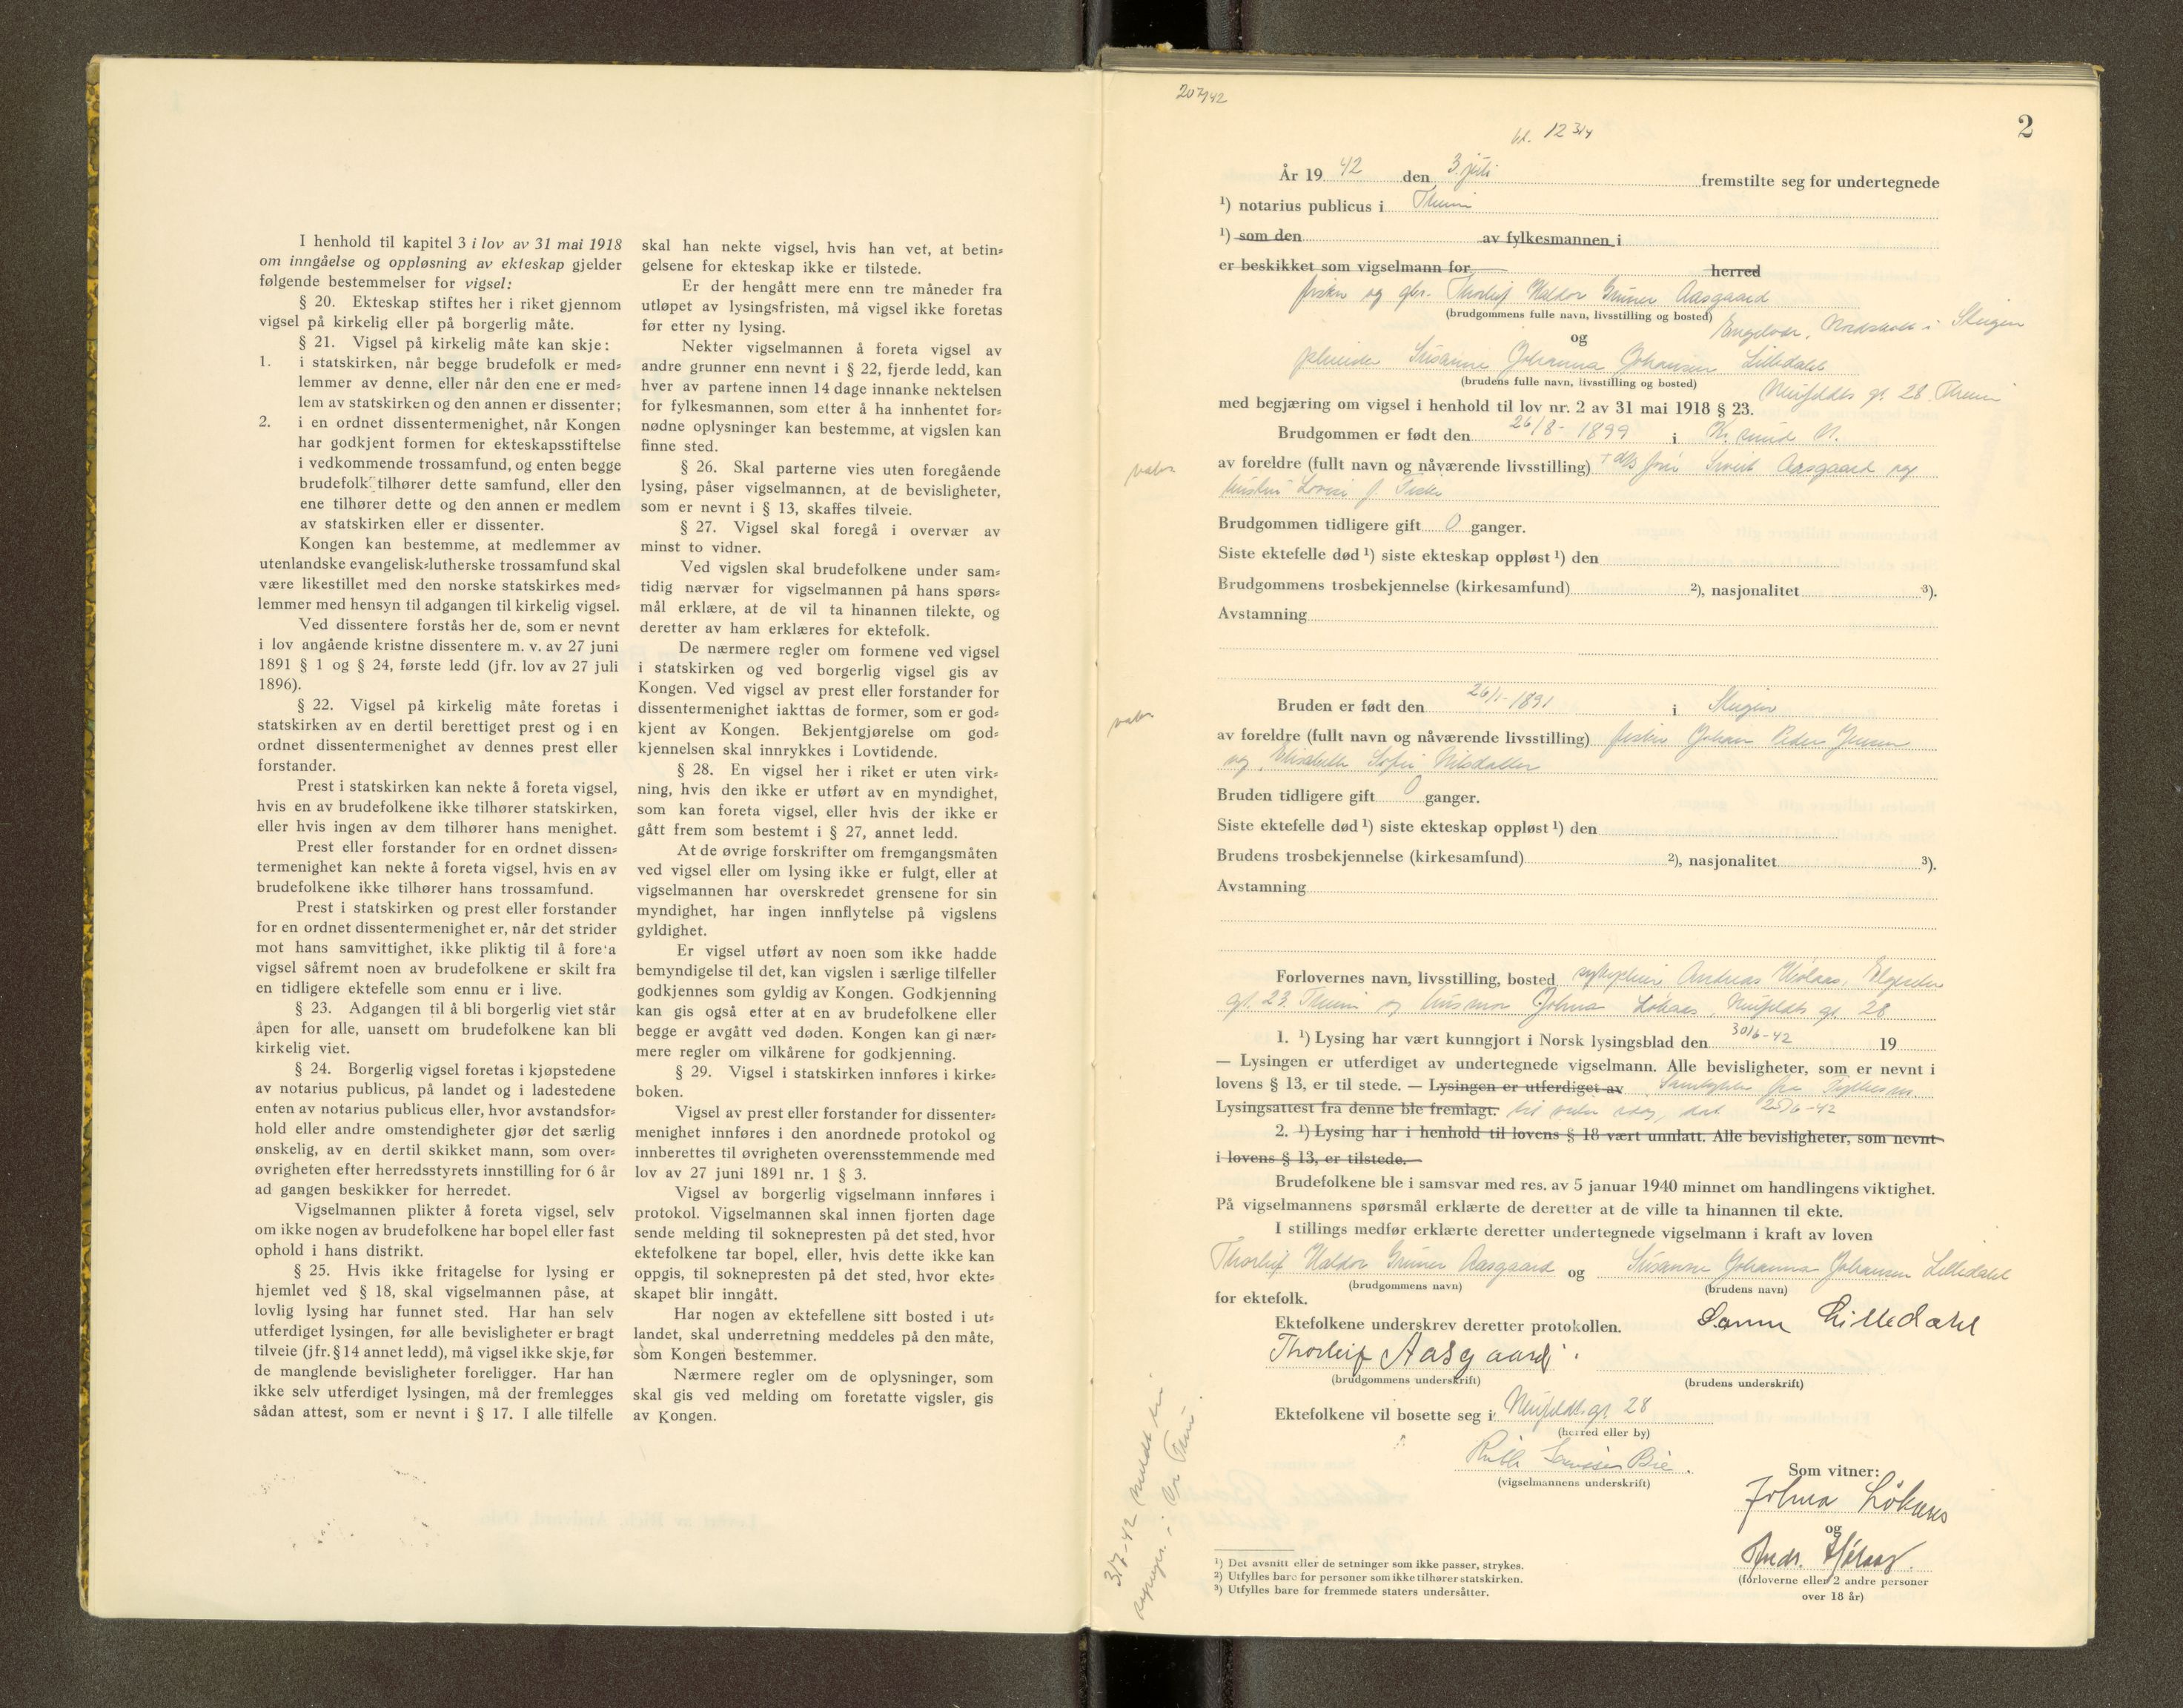 I henhold til kapitel 3 i lov av 31 mai 1918
om inngåelse og oppløsning av ekteskap gjelder
følgende bestemmelser for vigsel:
§ 20. Ekteskap stiftes her i riket gjennom
vigsel på kirkelig eller på borgerlig måte.
§ 21. Vigsel på kirkelig måte kan skje:
1. i statskirken, når begge brudefolk er med=
lemmer av denne, eller når den ene er med=
lem av statskirken og den annen er dissenter;
2. i en ordnet dissentermenighet, når Kongen
har godkjent formen for ekteskapsstiftelse
i vedkommende trossamfund, og enten begge
brudefolk tilhører dette samfund, eller den
ene tilhører dette og den annen er medlem
av statskirken eller er dissenter.
Kongen kan bestemme, at medlemmer av
utenlandske evangelisk=lutherske trossamfund skal
være likestillet med den norske statskirkes med=
lemmer med hensyn til adgangen til kirkelig vigsel.
Ved dissentere forstås her de, som er nevnt
i lov angående kristne dissentere m. v. av 27 juni
1891 § 1 og § 24, første ledd (jfr. lov av 27 juli
1896).
§ 22. Vigsel på kirkelig måte foretas i
statskirken av en dertil berettiget prest og i en
ordnet dissentermenighet av dennes prest eller
forstander.
Prest i statskirken kan nekte å foreta vigsel,
hvis en av brudefolkene ikke tilhører statskirken,
eller hvis ingen av dem tilhører hans menighet.
Prest eller forstander for en ordnet dissen=
termenighet kan nekte å foreta vigsel, hvis en av
brudefolkene ikke tilhører hans trossamfund.
Prest i statskirken og prest eller forstander
for en ordnet dissentermenighet er, når det strider
mot hans samvittighet, ikke pliktig til å fore'a
vigsel såfremt noen av brudefolkene er skilt fra
en tidligere ektefelle som ennu er i live.
§ 23. Adgangen til å bli borgerlig viet står
åpen for alle, uansett om brudefolkene kan bli
kirkelig viet.
§ 24. Borgerlig vigsel foretas i kjøpstedene
av notarius publicus, på landet og i ladestedene
enten av notarius publicus eller, hvor avstandsfor=
hold eller andre omstendigheter gjør det særlig
ønskelig, av en dertil skikket mann, som over=
øvrigheten efter herredsstyrets innstilling for 6 år
ad gangen beskikker for herredet.
Vigselmannen plikter å foreta vigsel, selv
om ikke nogen av brudefolkene har bopel eller fast
ophold i hans distrikt.
§ 25. Hvis ikke fritagelse for lysing er
hjemlet ved § 18, skal vigselmannen påse, at
lovlig lysing har funnet sted. Har han selv
utferdiget lysingen, før alle bevisligheter er bragt
tilveie (jfr. § 14 annet ledd), må vigsel ikke skje, før
de manglende bevisligheter foreligger. Har han
ikke selv utferdiget lysingen, må der fremlegges
sådan attest, som er nevnt i § 17. I alle tilfelle
skal han nekte vigsel, hvis han vet, at betin=
gelsene for ekteskap ikke er tilstede.
Er der hengått mere enn tre måneder fra
utløpet av lysingsfristen, må vigsel ikke foretas
før etter ny lysing.
Nekter vigselmannen å foreta vigsel av
andre grunner enn nevnt i § 22, fjerde ledd, kan
hver av partene innen 14 dage innanke nektelsen
for fylkesmannen, som etter å ha innhentet for=
nødne oplysninger kan bestemme, at vigslen kan
finne sted.
§ 26. Skal parterne vies uten foregående
lysing, påser vigselmannen, at de bevisligheter,
som er nevnt i § 13, skaffes tilveie.
§ 27. Vigsel skal foregå i overvær av
minst to vidner.
Ved vigslen skal brudefolkene under sam=
tidig nærvær for vigselmannen på hans spørs=
mål erklære, at de vil ta hinannen tilekte, og
deretter av ham erklæres for ektefolk.
De nærmere regler om formene ved vigsel
i statskirken og ved borgerlig vigsel gis av
Kongen. Ved vigsel av prest eller forstander for
dissentermenighet iakttas de former, som er god=
kjent av Kongen. Bekjentgjørelse om god=
kjennelsen skal innrykkes i Lovtidende.
§ 28. En vigsel her i riket er uten virk=
ning, hvis den ikke er utført av en myndighet,
som kan foreta vigsel, eller hvis der ikke er
gått frem som bestemt i § 27, annet ledd.
At de øvrige forskrifter om fremgangsmåten
ved vigsel eller om lysing ikke er fulgt, eller at
vigselmannen har overskredet grensene for sin
myndighet, har ingen innflytelse på vigslens
gyldighet.
Er vigsel utført av noen som ikke hadde
bemyndigelse til det, kan vigslen i særlige tilfeller
godkjennes som gyldig av Kongen. Godkjenning
kan gis også etter at en av brudefolkene eller
begge er avgått ved døden. Kongen kan gi nær=
mere regler om vilkårene for godkjenning.
§ 29. Vigsel i statskirken innføres i kirke=
boken.
Vigsel av prest eller forstander for dissenter=
menighet innføres i den anordnede protokol og
innberettes til øvrigheten overensstemmende med
lov av 27 juni 1891 nr. 1 § 3.
Vigsel av borgerlig vigselmann innføres i
protokol. Vigselmannen skal innen fjorten dage
sende melding til soknepresten på det sted, hvor
ektefolkene tar bopel, eller, hvis dette ikke kan
oppgis, til soknepresten på det sted, hvor ekte=
skapet blir inngått.
Har nogen av ektefellene sitt bosted i ut=
landet, skal underretning meddeles på den måte,
som Kongen bestemmer.
Nærmere regler om de oplysninger, som
skal gis ved melding om foretatte vigsler, gis
av Kongen.
207/42
kl. 12 3/4
2
År 19 42 den 3. juli fremstilte seg for undertegnede
¹) notarius publicus i
¹) som den av fylkesmannen i
er beskikket som vigselmann for herred
Thorleif Haldor Gruner Aasgaard
(brudgommens fulle navn, livsstilling og bosted)
i Steigen
og
Susanne Johanna Johansen Lilledahl
(brudens fulle navn, livsstilling og bosted)
Neufeldts gt. 28
med begjæring om vigsel i henhold til lov nr. 2 av 31 mai 1918 § 23.
Brudgommen er født den 26/8 - 1899 i Kr.sund N.
av foreldre (fullt navn og nåværende livsstilling) Sivert Aasgaard og
hustru
Brudgommen tidligere gift 0 ganger.
Siste ektefelle død ¹) siste ekteskap oppløst ¹) den
Brudgommens trosbekjennelse (kirkesamfund) ²), nasjonalitet ³).
Avstamning
Bruden er født den 26/1 - 1891 i Steigen
av foreldre (fullt navn og nåværende livsstilling) fisker Johan Peder Jensen
og Elisabeth Sofie Nilsdatter
Bruden tidligere gift 0 ganger.
Siste ektefelle død ¹) siste ekteskap oppløst ¹) den
Brudens trosbekjennelse (kirkesamfund) ²), nasjonalitet ³).
Avstamning
Forlovernes navn, livsstilling, bosted Andreas
gt. 23 og husmor Johna Løkaas, Neufeldts gt. 28
1. ¹) Lysing har vært kunngjort i Norsk lysingsblad den 30/6-42 19
— Lysingen er utferdiget av undertegnede vigselmann. Alle bevisligheter, som er nevnt i
lovens § 13, er til stede. — Lysingen er utferdiget av Samtykke fra
Lysingsattest fra denne ble fremlagt. 25/6-42
2. ¹) Lysing har i henhold til lovens § 18 vært unnlatt. Alle bevisligheter, som nevnt
i lovens § 13, er tilstede.
Brudefolkene ble i samsvar med res. av 5 januar 1940 minnet om handlingens viktighet.
På vigselmannens spørsmål erklærte de deretter at de ville ta hinannen til ekte.
I stillings medfør erklærte deretter undertegnede vigselmann i kraft av loven
Thorleif Haldor Gruner Aasgaard og Susanne Johanna Johansen Lilledahl
(brudgommens navn) (brudens navn)
for ektefolk.
Ektefolkene underskrev deretter protokollen. Sanna Lilledahl
Thorleif Aasgaard
(brudgommens underskrift) (brudens underskrift)
Ektefolkene vil bosette seg i Neufeldts gt. 28
(herred eller by)
Bie.
(vigselmannens underskrift)
Som vitner:
Johna Løkaas
og
Andr.
(forloverne eller 2 andre personer
over 18 år)
3/7-42 meldt
¹) Det avsnitt eller de setninger som ikke passer, strykes.
²) Utfylles bare for personer som ikke tilhører statskirken.
³) Utfylles bare for fremmede staters undersåtter.